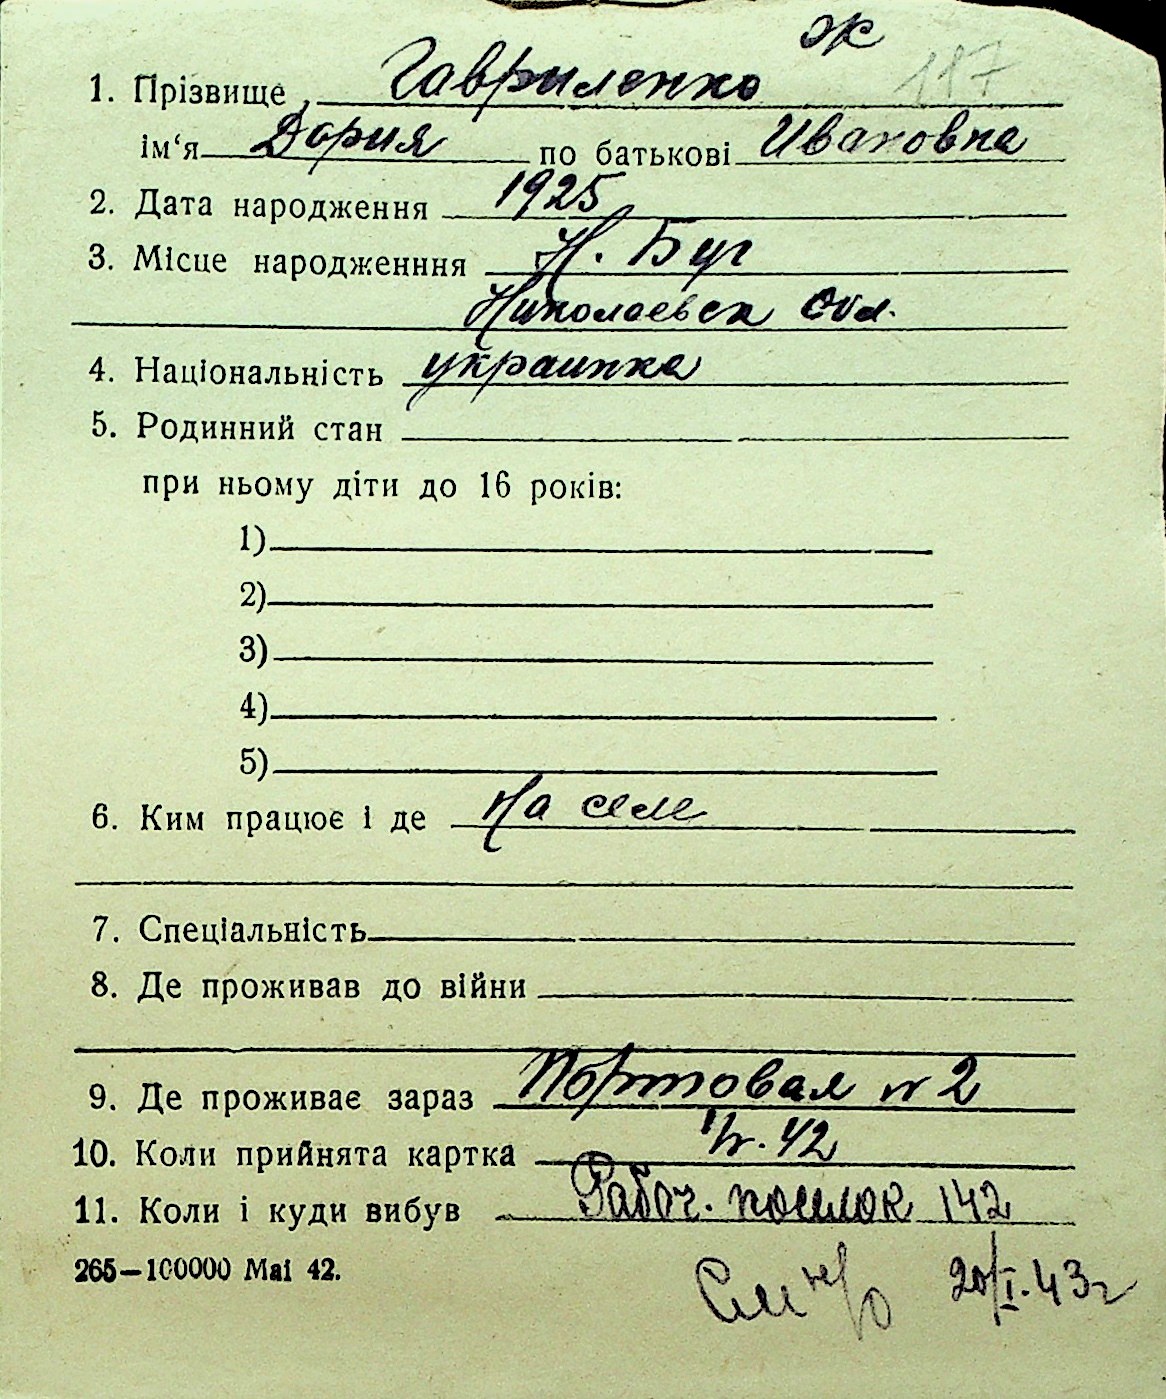 ж
117
1. Прізвище Гавриленко
ім‘я Дария по батькові Ивановна
2. Дата народження 1925
3. Місце народженння Н. Буг
Николаевск обл.
4. Національність украинка
5. Родинний стан
при ньому діти до 16 років:
1)
2)
3)
4)
5)
6. Ким працює і де На селе
7. Спеціальність
8. Де проживав до війни
9. Де проживає зараз Портовая № 2
10. Коли прийнята картка 42
11. Коли і куди вибув Рабоч. поселок 142
265—100000 Mai 42.
20/I.43г